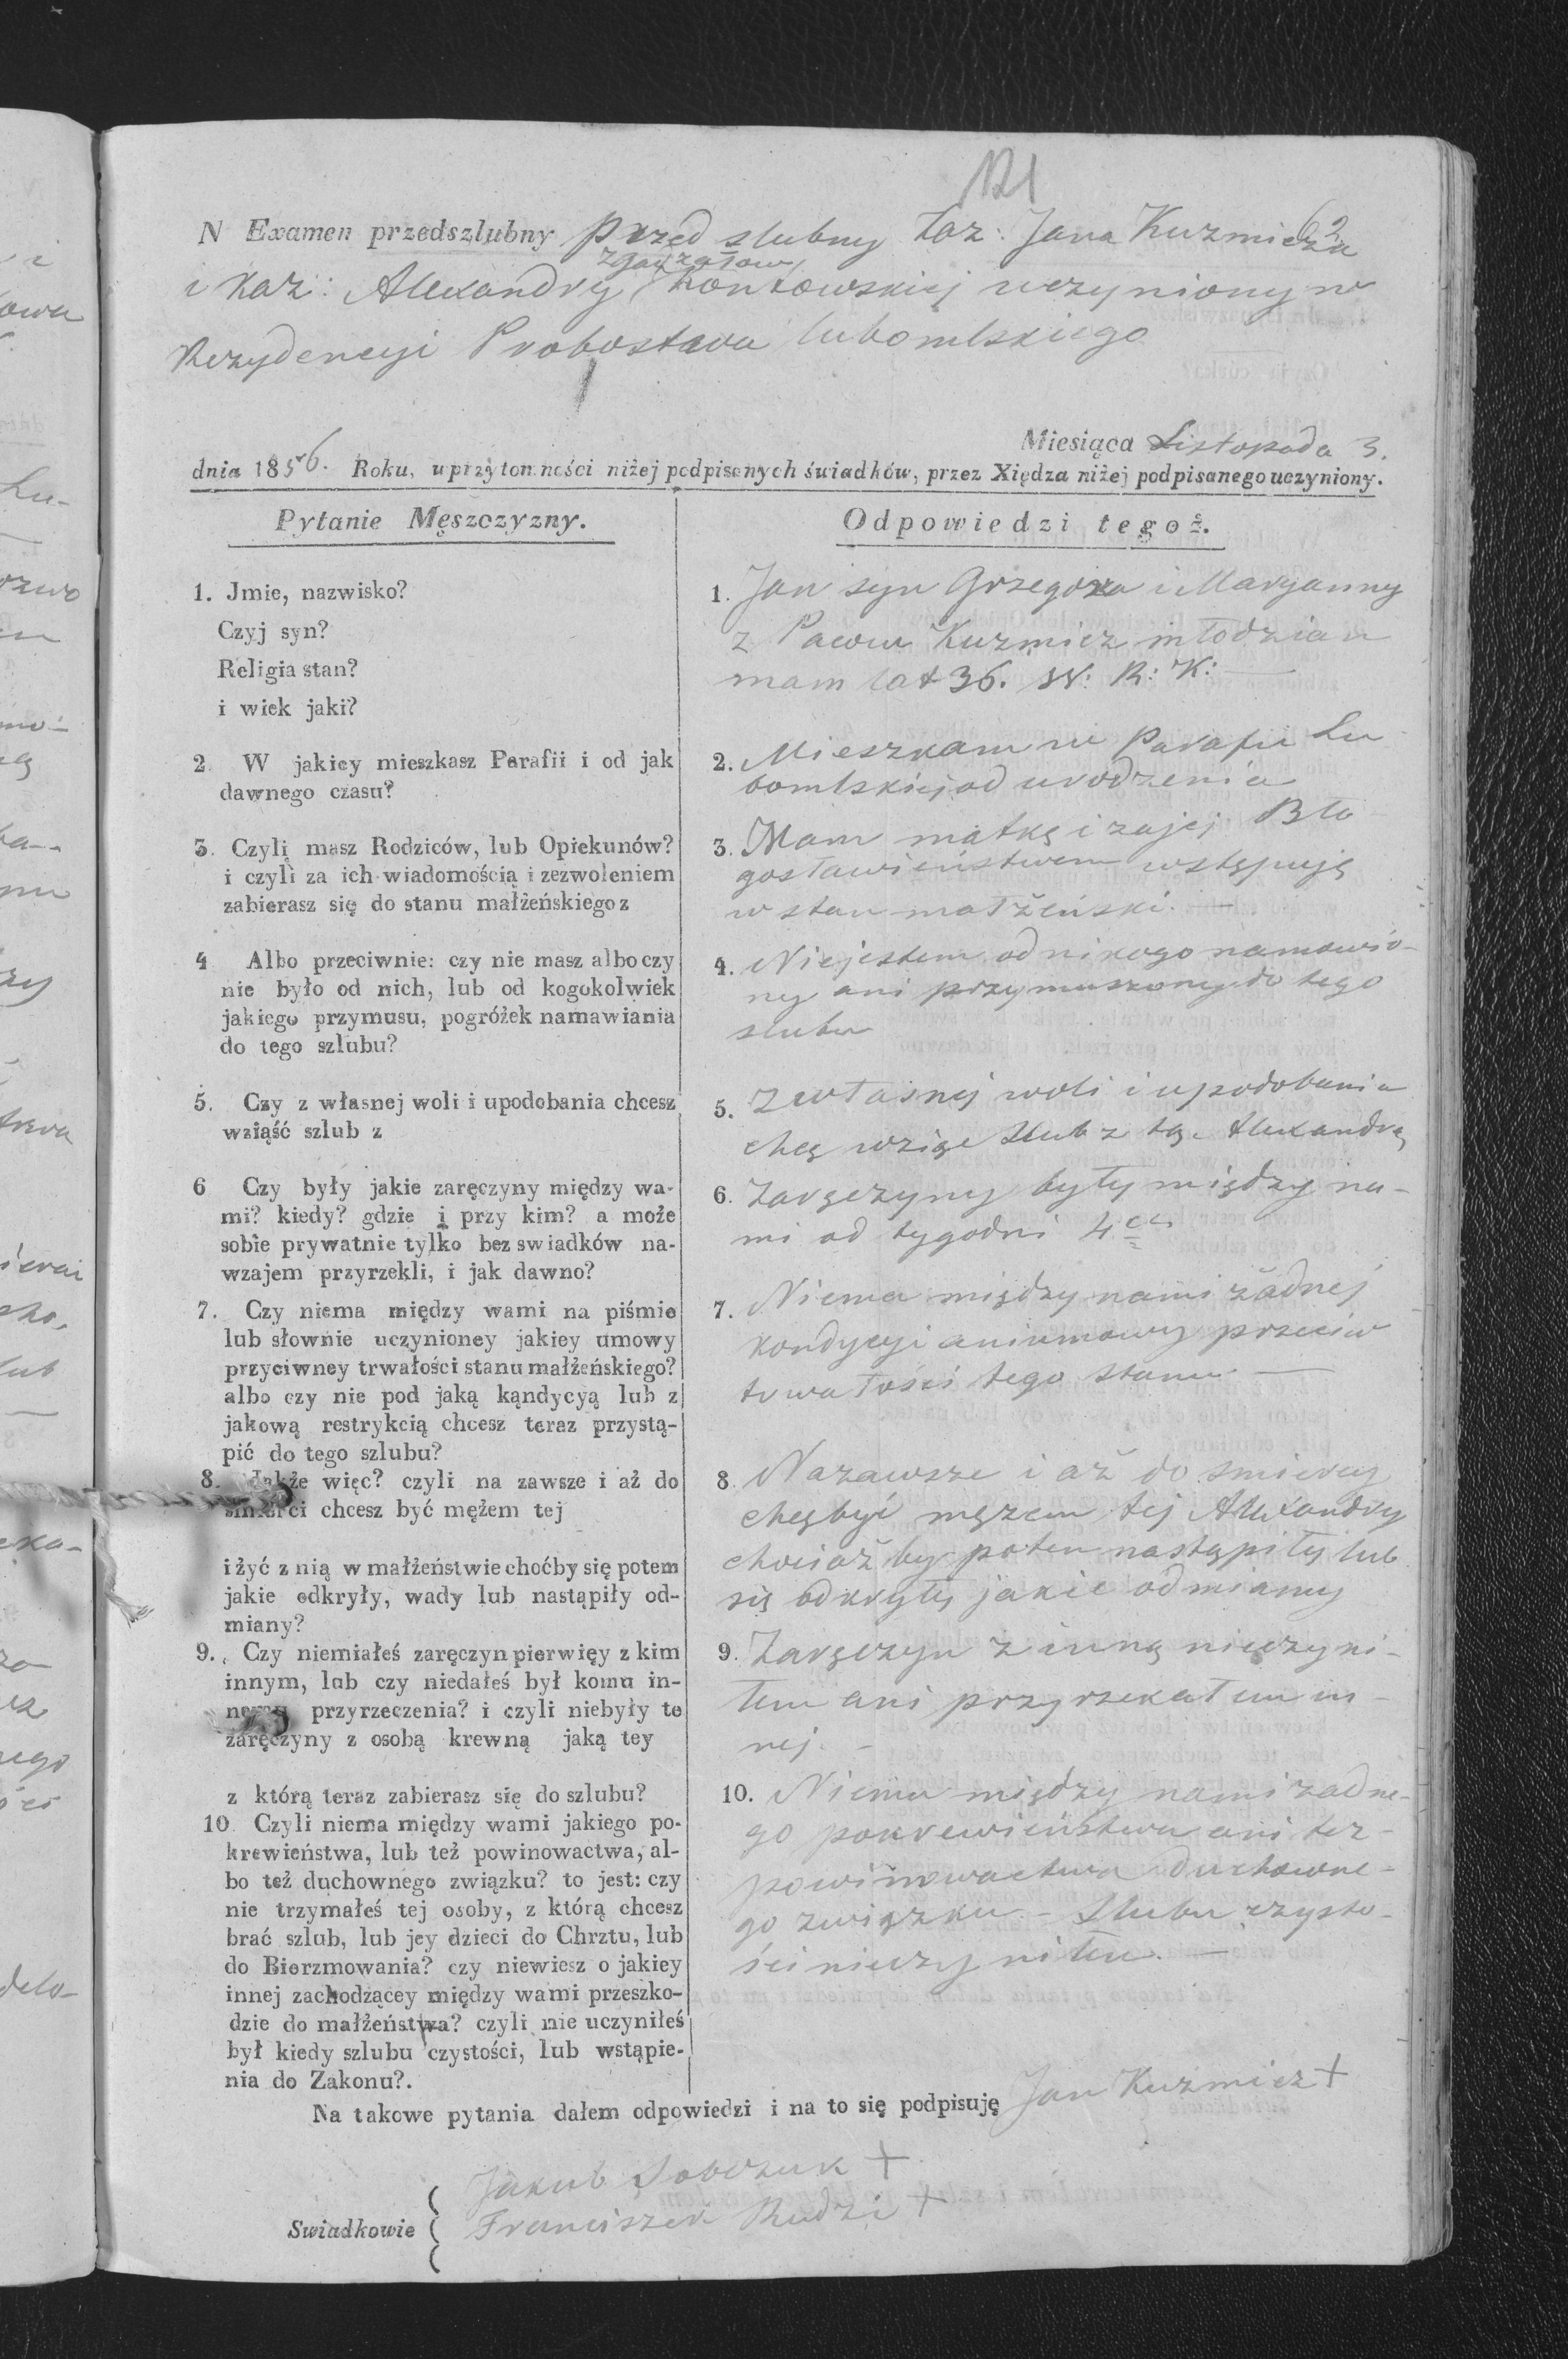 121
N Examen przedszlubny przed slubny Łaz: Jana Kuzmicza 62
zgaczałow
i Kaz: Alexandry Kontowskiej uczyniony w
Rezydencyi Probostwa lubomlskiego
Miesiąca Listopada 3.
dnia 1856. Roku, w przytomności niżej podpisanych świadków, przez Xiędza niżej podpisanego uczyniony.
Pytanie Męszczyzny.
Odpowiedzi tegoż.
1. Jmie, nazwisko?
Czyj syn?
Religia stan?
i wiek jaki?
1. Jan syn Grzegorza i Maryanny
z Kuzmicz młodzian
mam lat 36. W: R: K:
2. W jakiey mieszkasz Parafii i od jak
dawnego czasu?
2. Mieszkam w Parafii Lu
bomlskiej od urodzenia
3. Czylį masz Rodziców, lub Opiekunów?
i czyli za ich wiadomością i zezwoleniem
zabierasz się do stanu małżeńskiego z
3. Mam matkę i za jej Bło
gosławieństwem wstępuję
w stan małżeński. —
4 Albo przeciwnie: czy nie masz albo czy
nie było od nich, lub od kogokolwiek
jakiego przymusu, pogróżek namawiania
do tego szlubu?
4. Niejestem od nikogo namowio-
ny ani przymuszony do tego
slubu
5. Czy z własnej woli i upodobania chcesz
wziąść szlub z
5. Z własnej woli i upodobania
chcę wziąc slub z tą Alexandrą
6 Czy były jakie zaręczyny między wa-
mi? kiedy? gdzie i przy kim? a może
sobie prywatnie tylko bez swiadków na-
wzajem przyrzekli, i jak dawno?
6. Zaręczyny były między na-
mi od tygodni 4ch
7. Czy niema między wami na piśmie
lub słownie uczynioney jakiey umowy
przyciwney trwałości stanu małżeńskiego?
albo czy nie pod jaką kąndycyą lub z
jakową restrykcią chcesz teraz przystą-
pić do tego szlubu?
7. Niema między nami żadnej
kondycyi ani umowy przeciw
trwałości tego stanu —
8. Jakże więc? czyli na zawsze i aż do
śmierci chcesz być mężem tej
i żyć z nią w małżeństwie choćby się potem
jakie odkryły, wady lub nastąpiły od-
miany?
8. Nazawsze i aż do smierci
chcę być mężem tej Alexandry
chociaż by potem nastąpiły lub
się odkryły jakie odmiany
9. Czy niemiałeś zaręczyn pierwięy z kim
innym, lub czy niedałeś był komu in-
nemu przyrzeczenia? i czyli niebyły te
zaręczyny z osobą krewną jaką tey
z którą teraz zabierasz się do szlubu?
9. Zaręczyn z inną nieczyni-
łem ani przyrzekałem in-
nej. —
10. Czyli niema między wami jakiego po-
krewieństwa, lub też powinowactwa, al-
bo też duchownego związku? to jest: czy
nie trzymałeś tej osoby, z którą chcesz
brać szlub, lub jey dzieci do Chrztu, lub
do Bierzmowania? czy niewiesz o jakiey
innej zachodzącey między wami przeszko-
dzie do małżeństwa? czyli nie uczyniłeś
był kiedy szlubu czystości, lub wstąpie-
nia do Zakonu?.
10. Niema między nami żadne-
go pokrewieństwa ani też-
powinowactwa duchowne-
go związku — Slubu czysto-
ści nieczyniłem. —
Na takowe pytania dałem odpowiedzi i na to się podpisuję Jan Kuzmicz +
Jakub Sobczuk +
Swiadkowie Franciszek Rudzi +